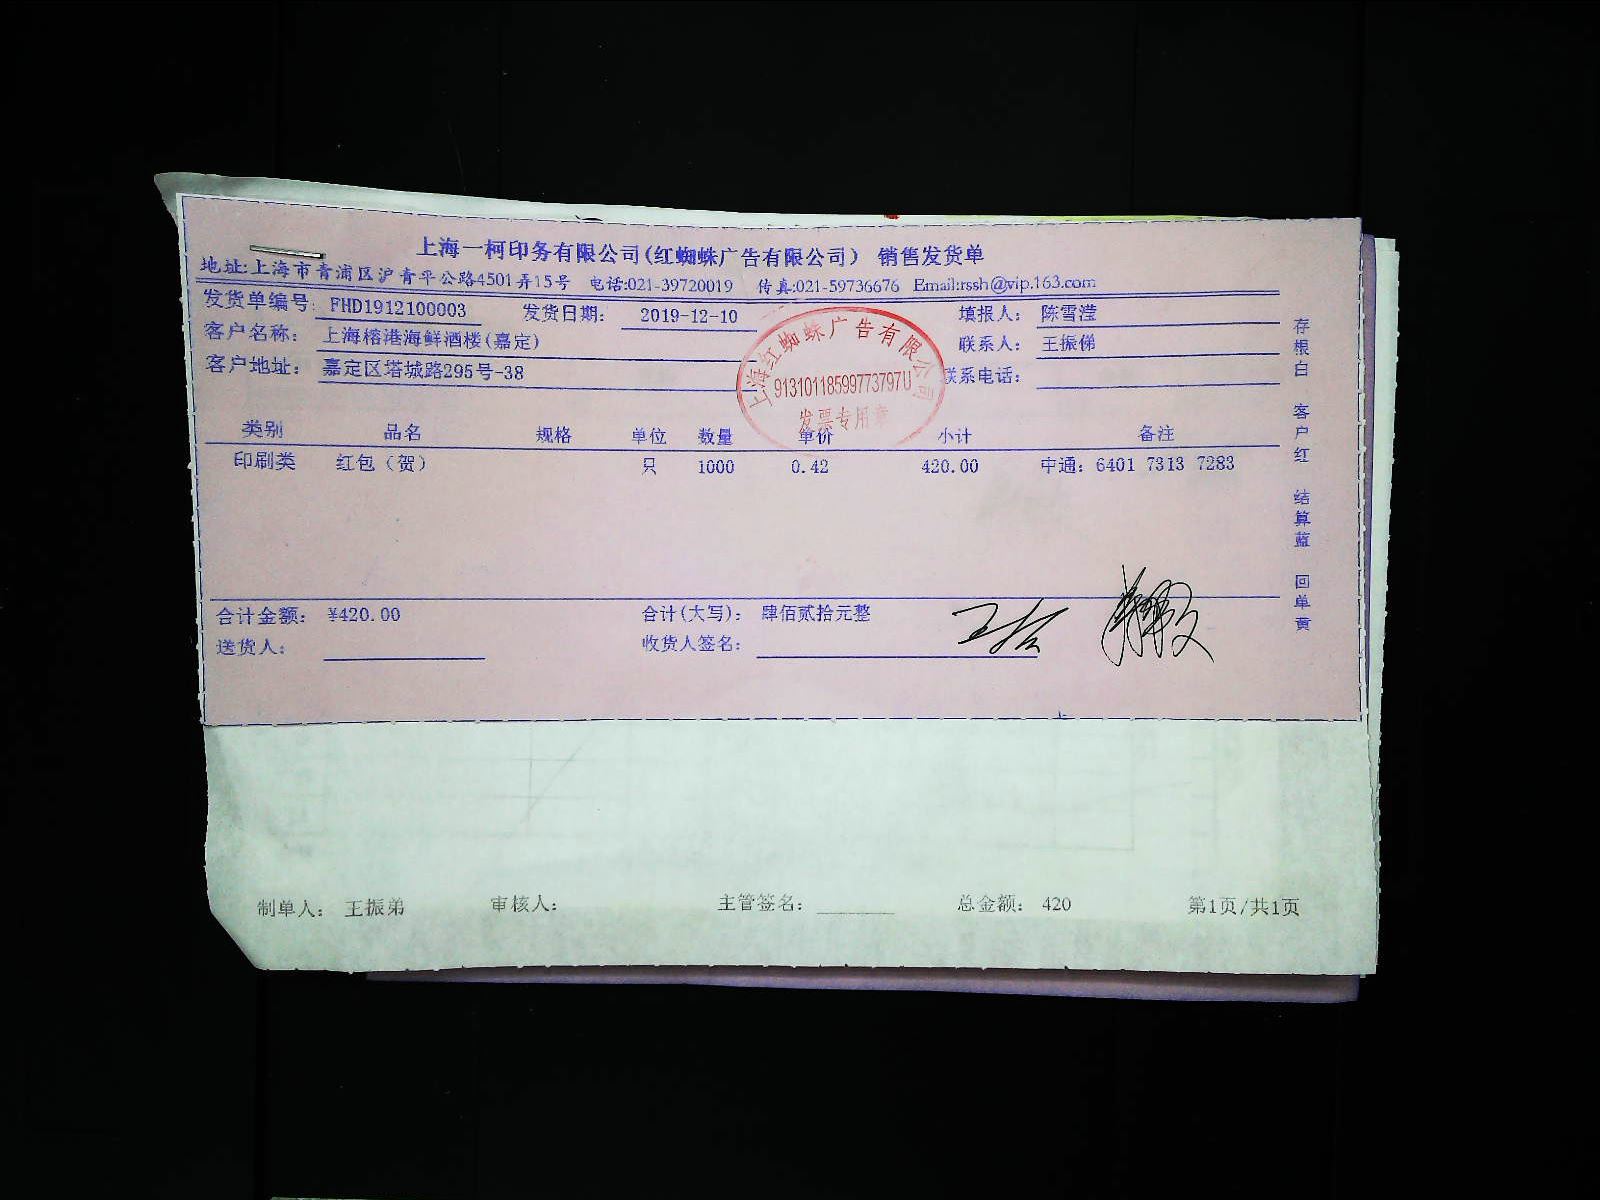 上海一柯印务有限公司(红蜘蛛广告有限公司) 销售发货单
地址:上海市青浦区沪青平公路4501弄15号 电话:021-39720019 传真:021-59736676 Email:rssh@vip.163.com
发货单编号: FHD1912100003 发货日期: 2019-12-10 填报人: 陈雪滢
客户名称: 上海榕港海鲜酒楼(嘉定) 联系人: 王振俤
客户地址: 嘉定区塔城路295号-38 联系电话:
上海红蜘蛛广告有限公司
91310118599773797U
发票专用章
类别 品名 规格 单位 数量 单价 小计 备注
印刷类 红包（贺） 只 1000 0.42 420.00 中通: 6401 7313 7283
合计金额: ¥420.00 合计(大写): 肆佰贰拾元整
送货人: 收货人签名:
存根白 客户红 结算蓝 回单黄
制单人: 王振弟 审核人: 主管签名: 总金额: 420 第1页/共1页